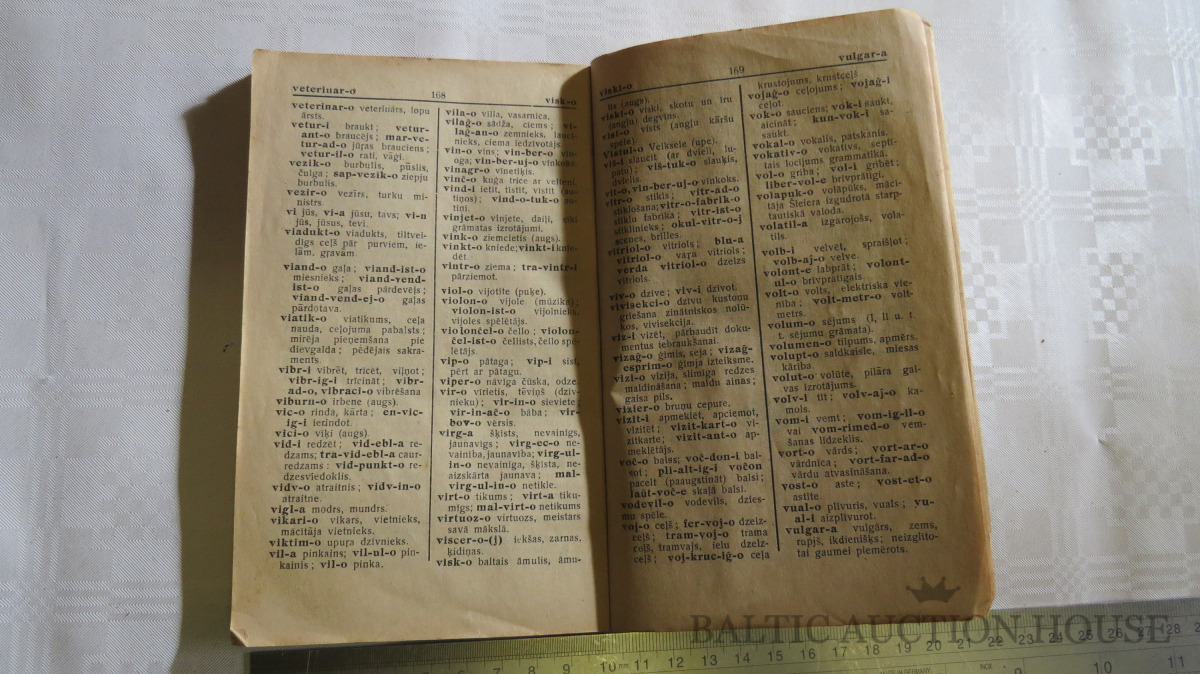 veterinar-o
168
visk-o
veterinar-o veterinārs, lopu
ārsts.
vetur-i braukt; vetur-
ant-o braucējs; mar-ve-
tur-ad-o jūŗas brauciens;
vetur-il-o rati, vāģi.
vezik-o burbulis, pūslis,
čulga; sap-vezik-o ziepju
burbulis.
vezir-o vezīrs, turku mi-
nistrs.
vi jūs, vi-a jūsu, tavs; vi-n
jūs, jūsus, tevi.
viadukt-o viadukts, tiltvei-
dīgs ceļš pār purviem, ie-
lām, gravām.
viand-o gaļa; viand-ist-o
miesnieks; viand-vend-
ist-o gaļas pārdevējs;
viand-vend-ej-o gaļas
pārdotava.
viatik-o viatikums, ceļa
nauda, ceļojuma pabalsts;
mirēja pieņemšana pie
dievgalda; pēdējais sakra-
ments.
vibr-i vibrēt, trīcēt, viļņot;
vibr-ig-i trīcināt; vibr-
ad-o, vibraci-o vibrēšana
viburn-o irbene (augs).
vic-o rinda, kārta; en-vic-
ig-i ierindot.
vici-o vīķi (augs).
vid-i redzēt; vid-ebl-a re-
dzams; tra-vid-ebl-a caur-
redzams: vid-punkt-o re-
dzesviedoklis.
vidv-o atraitnis; vidv-in-o
atraitne.
vigl-a modrs, mundrs.
vikari-o vikars, vietnieks,
mācītāja vietnieks.
viktim-o upuŗa dzīvnieks.
vil-a pinkains; vil-ul-o pin-
kainis; vil-o pinka.
vila-o villa, vasarnīca.
vilaĝ-o sādža, ciems; vi-
laĝ-an-o zemnieks, lauci-
nieks, ciema iedzīvotājs.
vin-o vīns; vin-ber-o vīn-
oga; vin-ber-uj-o vīnkoks.
vinagr-o vīnetiķis.
vinĉ-o kuģa trice ar velteni.
vind-i ietīt, tīstīt, vīstīt (au-
tiņos); vind-o-tuk-o au-
tiņi.
vinjet-o vinjete, daiļi,
grāmatas izrotājumi.
vink-o ziemcietis (augs).
vinkt-o kniede; vinkt-i knie-
dēt.
vintr-o ziema; tra-vintr-i
pārziemot.
viol-o vijolīte (puķe).
violon-o vijole (mūzika);
violon-ist-o vijolnieks,
vijoles spēlētājs.
violonĉel-o čello; violon-
ĉel-ist-o čellists, čello spē-
lētājs.
vip-o pātaga; vip-i sist,
pērt ar pātagu.
viper-o nāvīga čūska, odze.
vir-o vīrietis, tēviņš (dzīv-
nieku); vir-in-o sieviete;
vir-in-aĉ-o bāba; vir-
bov-o vērsis.
virg-a šķīsts, nevainīgs,
jaunavīgs; virg-ec-o ne-
vainība, jaunavība; virg-ul-
in-o nevainīga, šķīsta, ne-
aizskārta jaunava; mal-
virg-ul-in-o netikle.
virt-o tikums; virt-a tiku-
mīgs; mal-virt-o netikums
virtuoz-o virtuozs, meistars
savā mākslā.
viscer-o-(j) iekšas, zarnas,
ķidiņas.
visk-o baltais āmulis, āmu-
viski-o
169
vulgar-a
lis (augs).
viski-o viski, skotu un īru
(angļu) degvīns.
vist-o vists (angļu kāršu
spēle).
Vistul-o Veiksele (upe).
viŝ-i slaucīt (ar dvieli, lu-
patu); viŝ-tuk-o slauķis,
dvielis.
vit-o, vin-ber-uj-o vīnkoks.
vitr-o stikls; vitr-ad-o
stiklošana; vitr-o-fabrik-o
stiklu fabrika; vitr-ist-o
stiklinieks; okul-vitr-o-j
acenes, brilles.
vitriol-o vitriols; blu-a
vitriol-o vaŗa vitriols;
verda vitriol-o dzelzs
vitriols.
viv-o dzīve; viv-i dzīvot.
vivisekci-o dzīvu kustoņu
griešana zinātniskos nolū-
kos, vivisekcija.
viz-i vizēt, pārbaudīt doku-
mentus iebraukšanai.
vizaĝ-o ģīmis, seja; vizaĝ-
esprim-o ģīmja izteiksme.
vizi-o vīzija, slimīga redzes
maldināšana; maldu ainas;
gaisa pils.
vizier-o bruņu cepure.
vizit-i apmeklēt, apciemot,
vizitēt; vizit-kart-o vi-
zītkarte; vizit-ant-o ap-
meklētājs.
voĉ-o balss; voĉ-don-i bal-
sot; pli-alt-ig-i voĉon
pacelt (paaugstināt) balsi;
laŭt-voĉ-e skaļā balsī.
vodevil-o vodevils, dzies-
mu spēle.
voj-o ceļš; fer-voj-o dzelz-
ceļš; tram-voj-o trama
ceļš, tramvajs, ielu dzelz-
ceļš; voj-kruc-iĝ-o ceļa
krustojums, krustceļš
vojaĝ-o ceļojums; vojaĝ-i
ceļot.
vok-o sauciens; vok-i saukt,
aicināt; kun-vok-i sa-
saukt.
vokal-o vokalis, patskanis.
vokativ-o vokatīvs, septī-
tais locījums gramatikā.
vol-o griba; vol-i gribēt;
liber-vol-e brīvprātīgi.
volapuk-o volapūks, mācī-
tāja Šleiera izgudrotā starp-
tautiskā valoda.
volatil-a izgarojošs, vola-
tils.
volb-i velvēt, spraišļot;
volb-aj-o velve.
volont-e labprāt; volont-
ul-o brīvprātīgais.
volt-o volts, elektriska vie-
nība; volt-metr-o volt-
metrs.
volum-o sējums (I, II u. t.
t. sējumu grāmata).
volumen-o tilpums, apmērs.
volupt-o saldkaisle, miesas
kāriba.
volut-o volūte, pīlāra gal-
vas izrotājums.
volv-i tīt; volv-aj-o ka-
mols.
vom-i vemt; vom-ig-il-o
vai vom-rimed-o vem-
šanas līdzeklis.
vort-o vārds; vort-ar-o
vārdnīca; vort-far-ad-o
vārdu atvasināšana.
vost-o aste; vost-et-o
astīte
vual-o plīvuris, vuals; vu-
al-i aizplīvurot.
vulgar-a vulgārs, zems,
rupjš, ikdienišķs; neizglīto-
tai gaumei piemērots.
BALTIC AUCTION HOUSE
7 8 9 10 mm 11 12 13 14 15 16 17 18 19 20 21 22 23 24 25 26 27 28
INOX
9 10 11